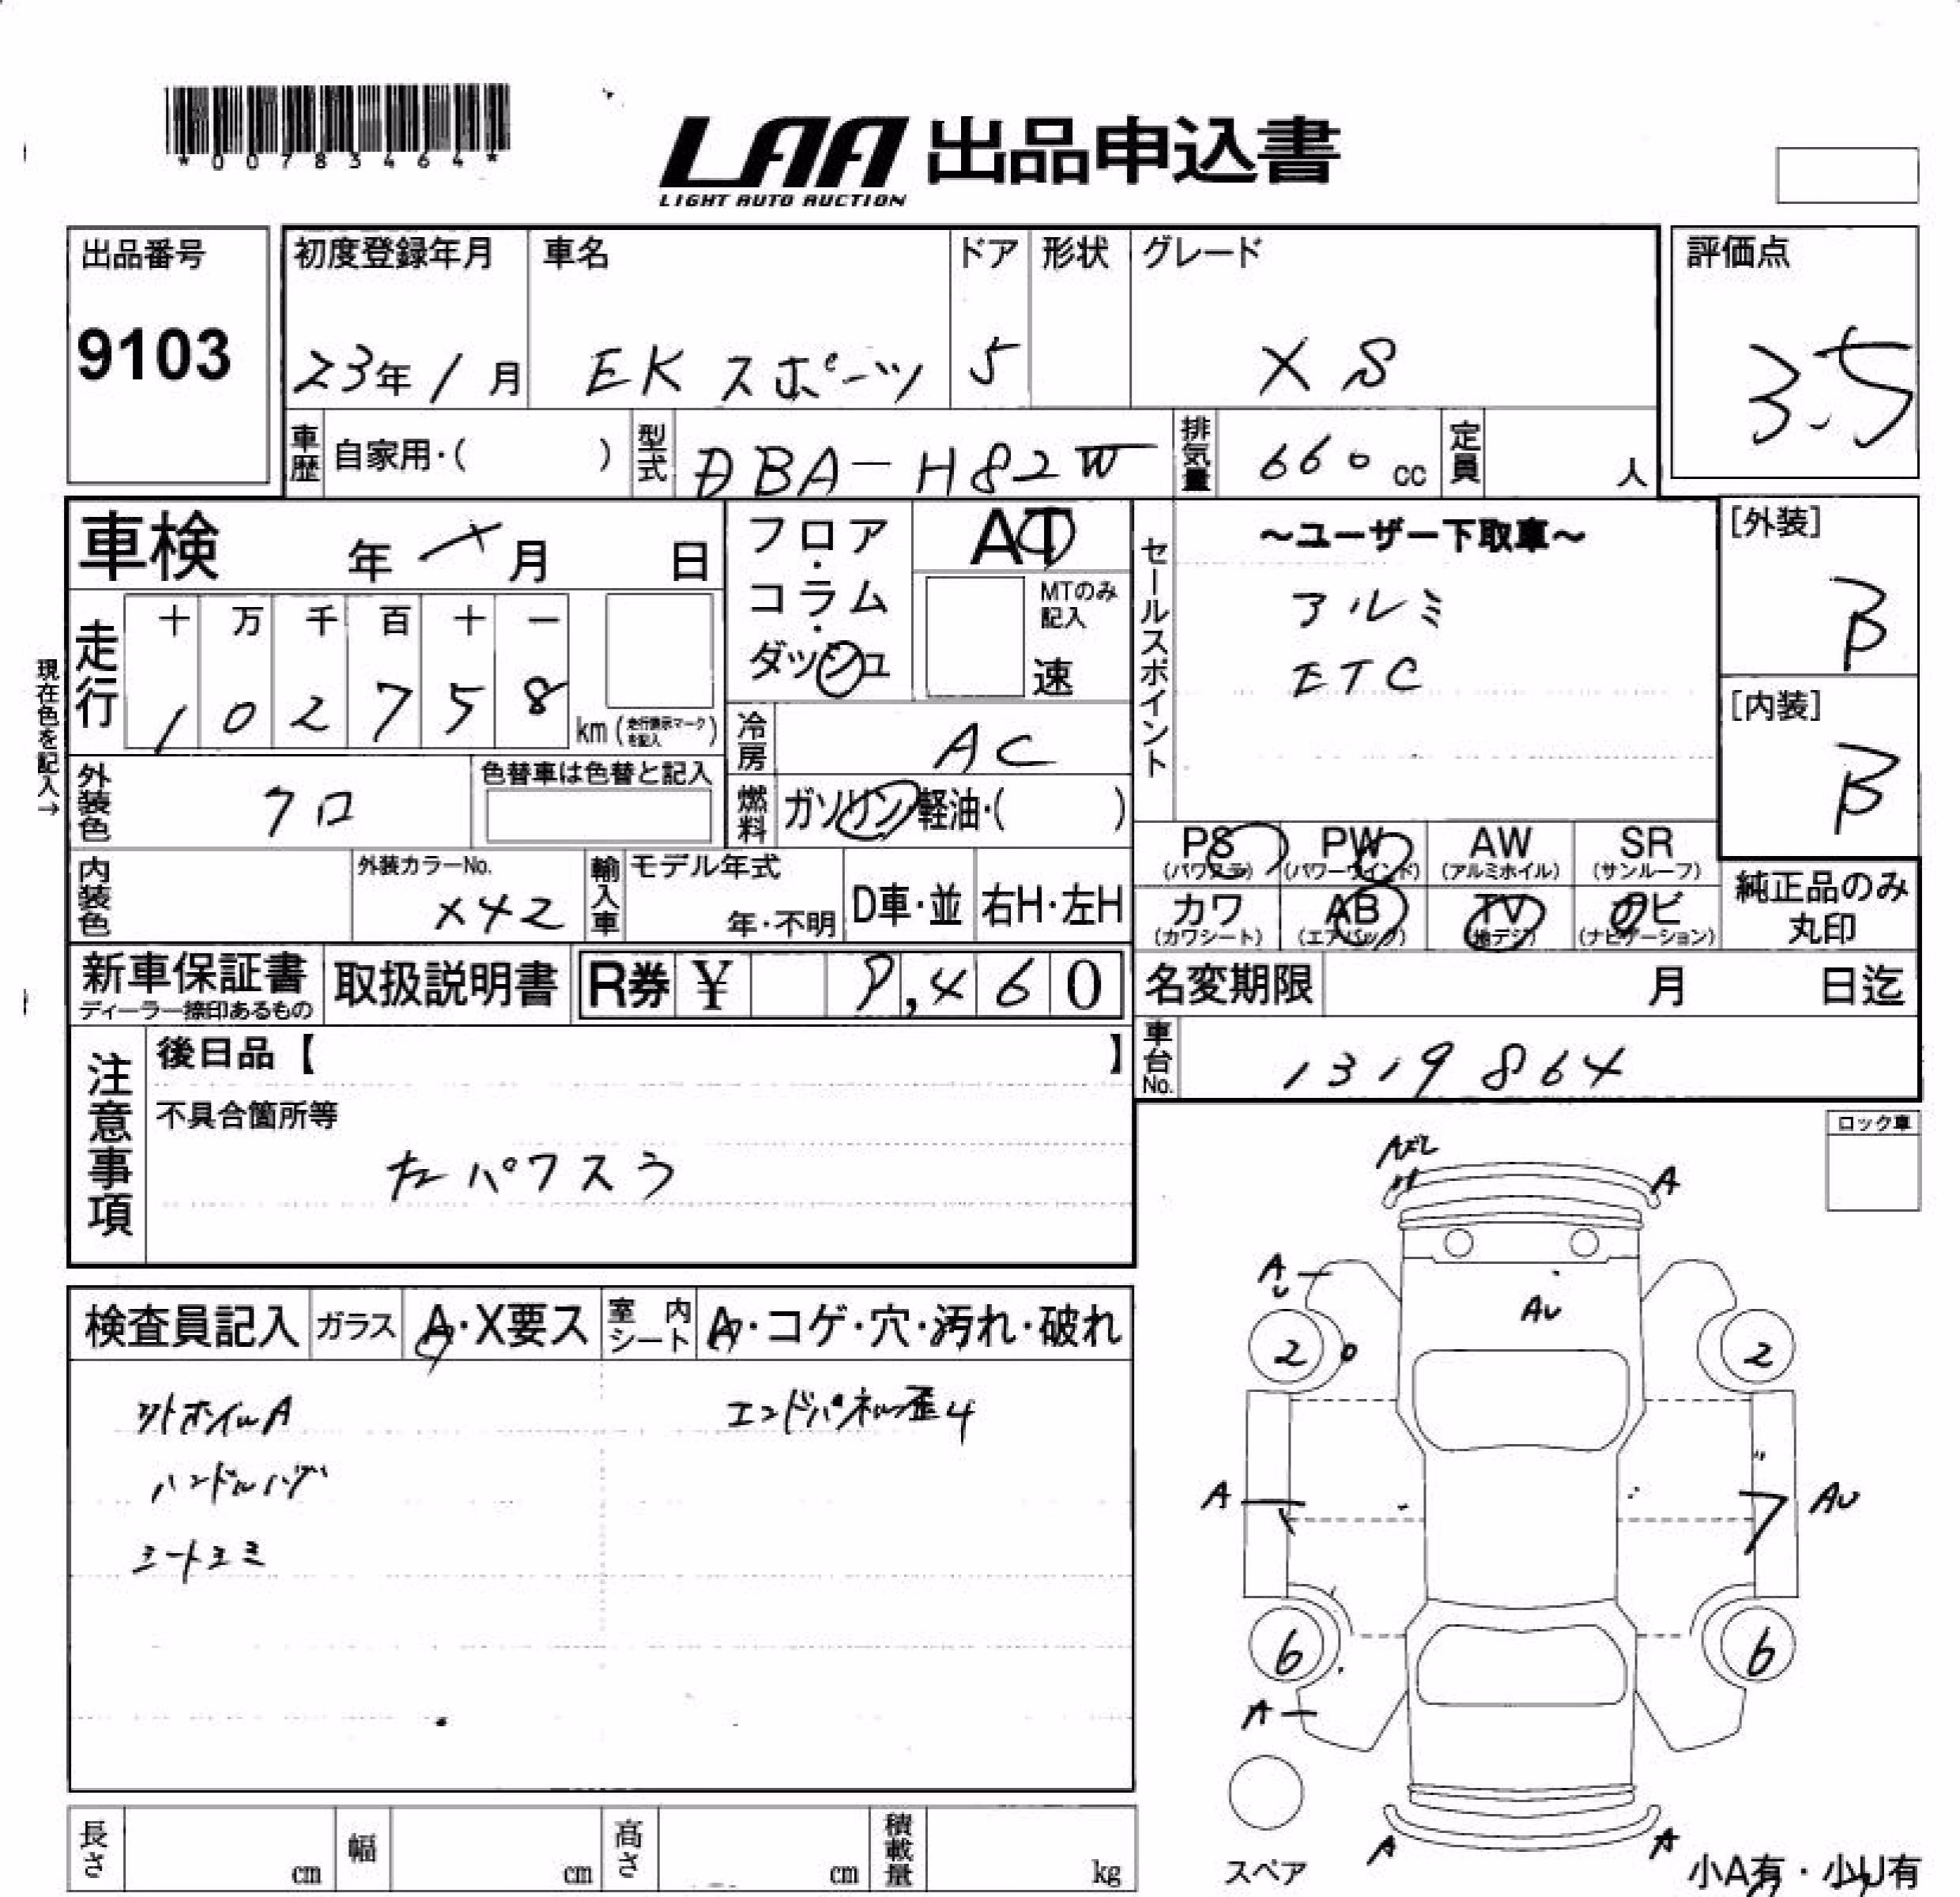 *00783464*
LAA 出品申込書
LIGHT AUTO AUCTION
出品番号
9103
初度登録年月
23年1月
車名
EK スポーツ
ドア
5
形状
グレード
XS
評価点
3.5
車歴
自家用・( )
型式
DBA-H82W
排気量
660cc
定員
人
車検 年 月 日
走行
十 万 千 百 十 一
1 0 2 7 5 8
km (走行表示マークを記入)
現在色を記入→
フロア・
コラム・
ダッシュ
AT
MTのみ
記入
速
冷房
AC
燃料
ガソリン・軽油・( )
セールスポイント
~ユーザー下取車~
アルミ
ETC
[外装]
B
[内装]
B
外装色
クロ
色替車は色替と記入
内装色
外装カラーNo.
X42
輸入車
モデル年式
年・不明
D車・並
右H・左H
PS
(パワステ)
PW
(パワーウインド)
AW
(アルミホイル)
SR
(サンルーフ)
カワ
(カワシート)
AB
(エアバック)
TV
(地デジ)
ナビ
(ナビゲーション)
純正品のみ
丸印
新車保証書
ディーラー捺印あるもの
取扱説明書
R券 ¥ 9,460
名変期限 月 日迄
車台No.
1319864
注意事項
後日品【 】
不具合箇所等
パワスラ
ロック車
検査員記入
ガラス
A・X要ス
室内シート
A・コゲ・穴・汚れ・破れ
ホイルA
ハンドルハゲ
シートシミ
エンドパネル歪4
A
A
AU
AU
2
2
A
AU
6
6
A
A
A
スペア
小A有・小U有
長さ
cm
幅
cm
高さ
cm
積載量
kg